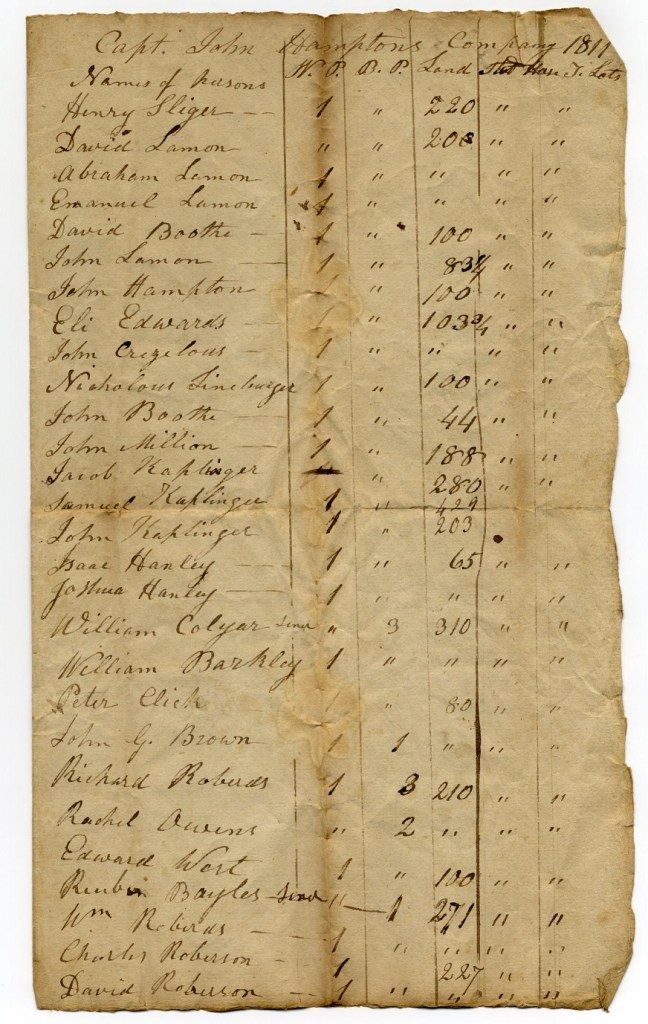 Capt. John Hamptons Company 1811
Names of persons W. P. B. P. Land Stud Horse T. Lots
Henry Sliger — — 1 " 220 " "
David Lamon — " " 200 " "
Abraham Lamon 1 " " " "
Emanuel Lamon 1 " " " "
David Boothe — 1 " 100 " "
John Lamon — 1 " 83 1/4 " "
John Hampton 1 " 100 " "
Eli Edwards — — 1 " 103 3/4 " "
John Cregelous — 1 " " " "
Nicholous Lineburger 1 " 100 " "
John Boothe — 1 " 44 " "
John Million — 1 " 188 " "
Jacob Kaplinger " " 280 " "
Samuel Kaplinger 1 " 429
John Kaplinger 1 " 203
Isaac Hanley — 1 " 65 " "
Joshua Hanley — 1 " " " "
William Colyar Sinr " 3 310 " "
William Barkley 1 " " " "
Peter Click 1 " 80 " "
John G. Brown 1 1 " " "
Richard Roberds 1 3 210 " "
Rachel Owens " 2 " " "
Edward West 1 " 100 " "
Reubin Bayles — Sinr " — 1 271 " "
Wm Roberds — — 1 " " " "
Charles Roberson — 1 " 227 " "
David Roberson — 1 " " " "